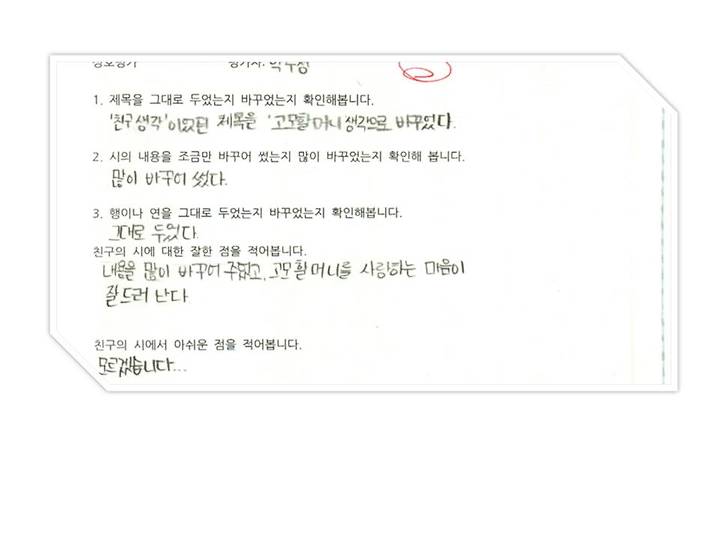 상호평가 평가자:
1. 제목을 그대로 두었는지 바꾸었는지 확인해봅니다.
'친구 생각'이었던 제목을 '고모할머니 생각으로 바꾸었다.
2. 시의 내용을 조금만 바꾸어 썼는지 많이 바꾸었는지 확인해 봅니다.
많이 바꾸어 썼다.
3. 행이나 연을 그대로 두었는지 바꾸었는지 확인해봅니다.
그대로 두었다.
친구의 시에 대한 잘한 점을 적어봅니다.
내용을 많이 바꾸어 주었고, 고모할머니를 사랑하는 마음이
잘 드러 난다
친구의 시에서 아쉬운 점을 적어봅니다.
모르겠습니다...